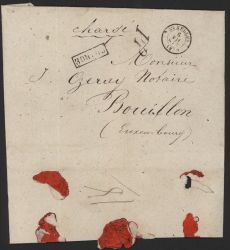 chargé
Monsieur
J. Geray Notaire
Bouillon
(Luxembourg)